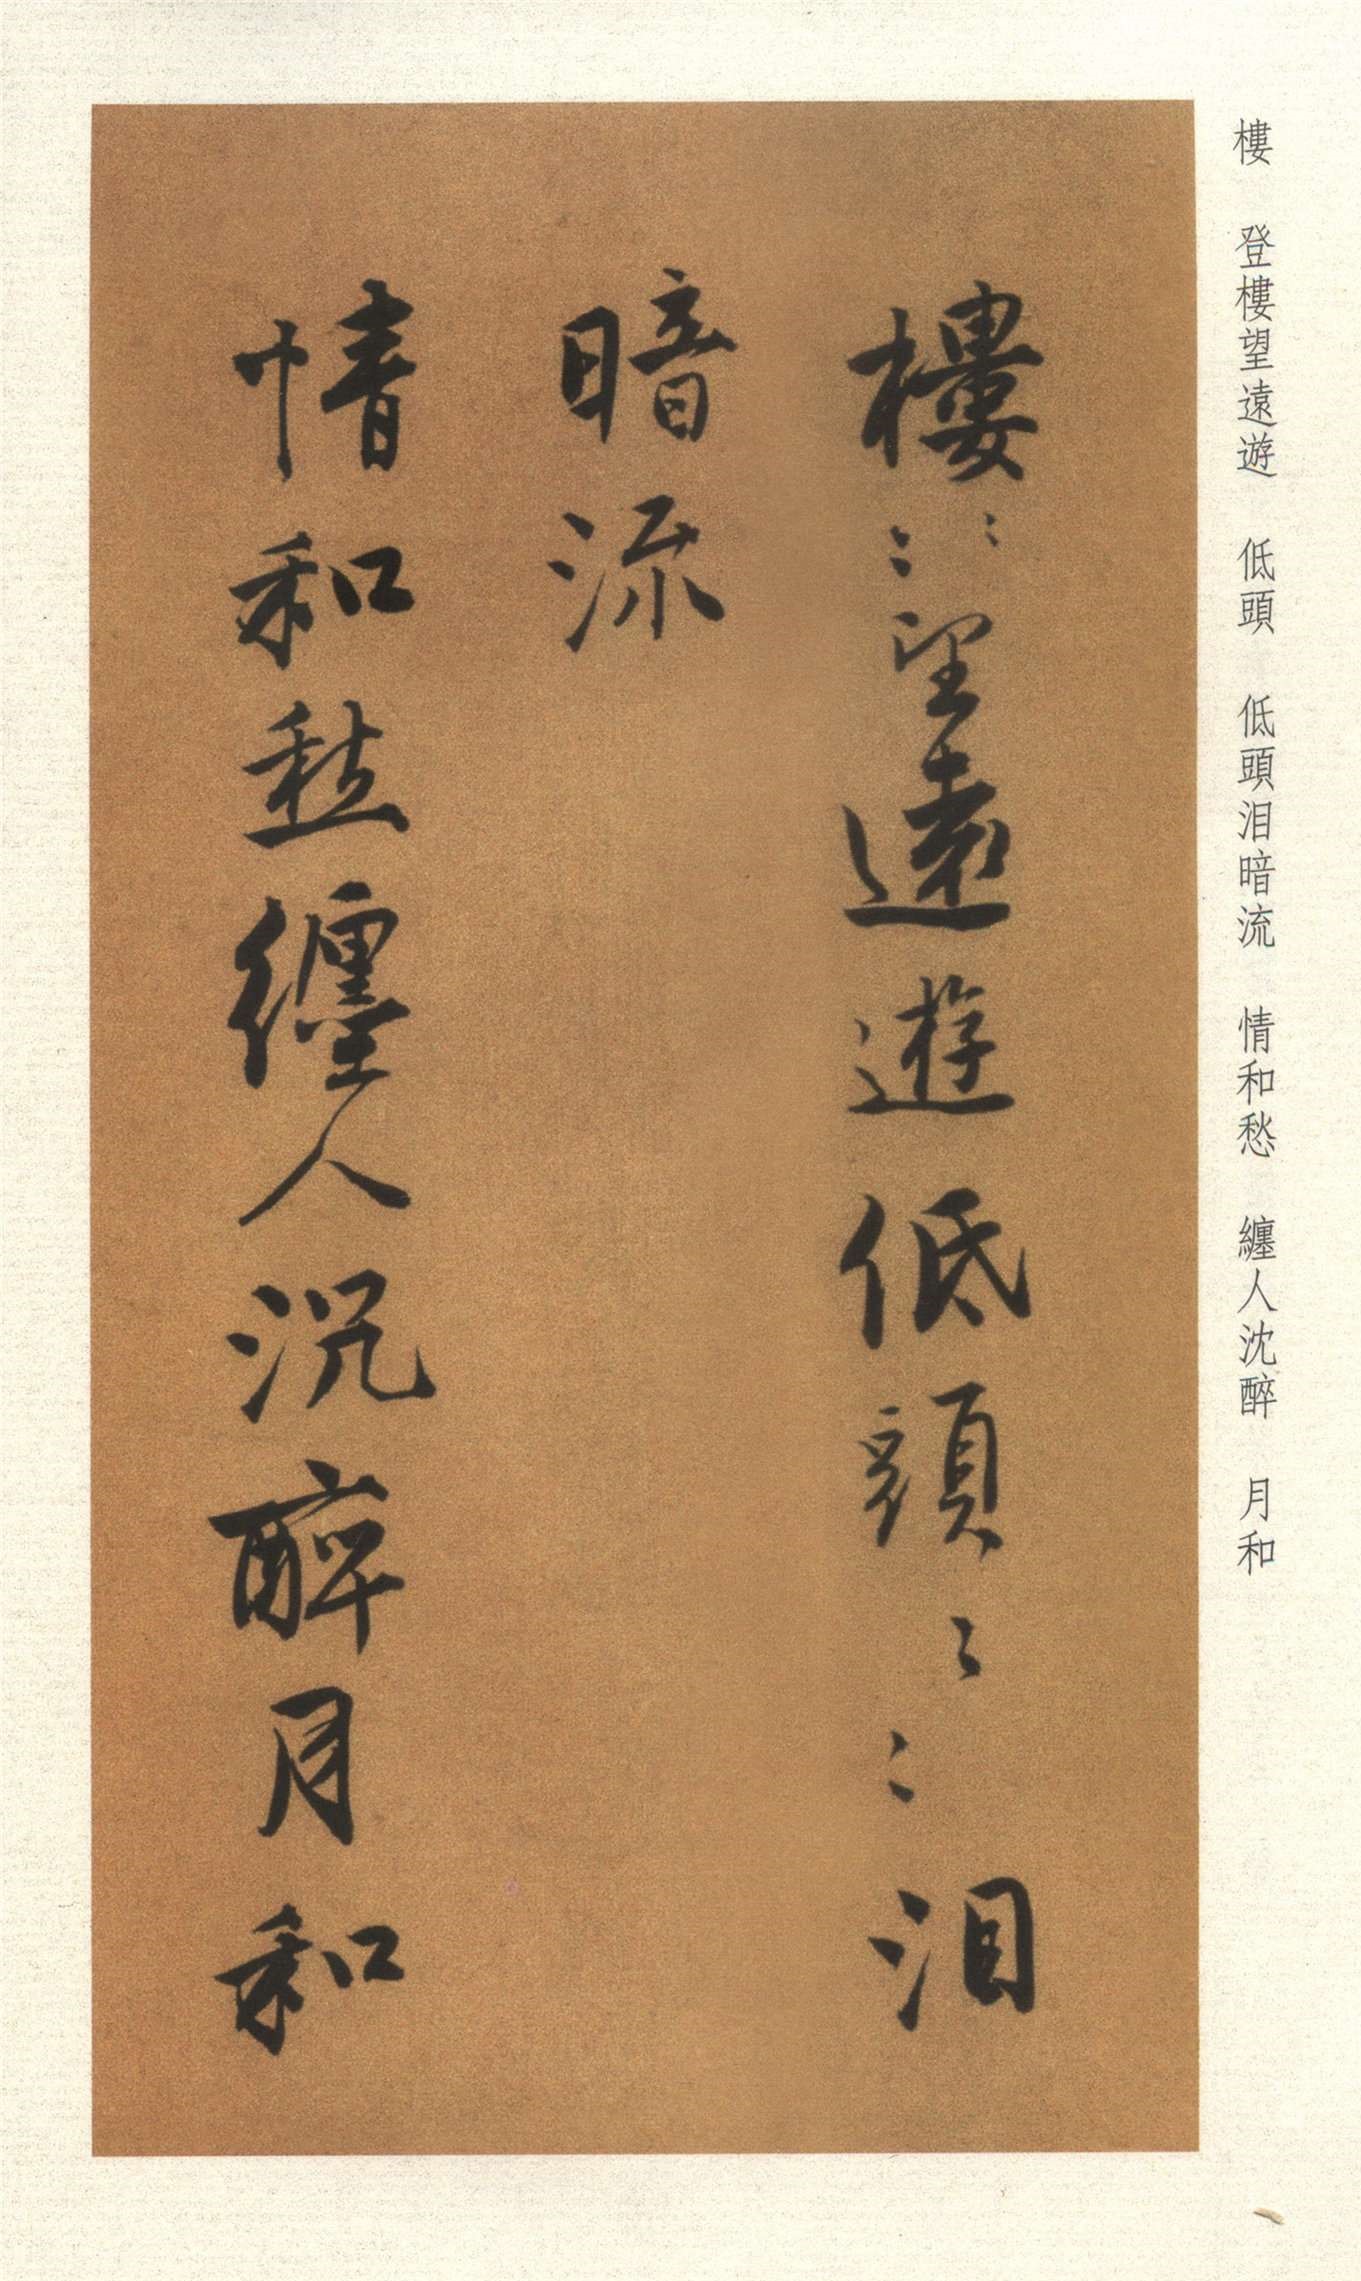 樓　登樓望遠遊　低頭　低頭泪暗流　情和愁　纏人沈醉　月和
樓〻〻望遠遊低頭〻〻泪
暗流
情和愁纏人沉醉月和